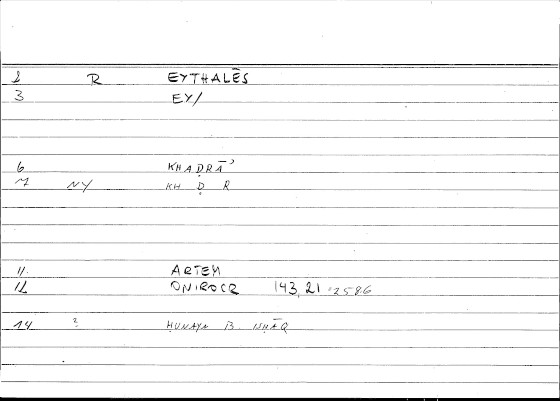 1 R EYTHALĒS
3 EY/
6 KHAḌRĀʾ
7 NY KH Ḍ R
11. ARTEM
12 ONIROCR 143,21 2586
14 ? ḤUNAYN B. ISḤĀQ